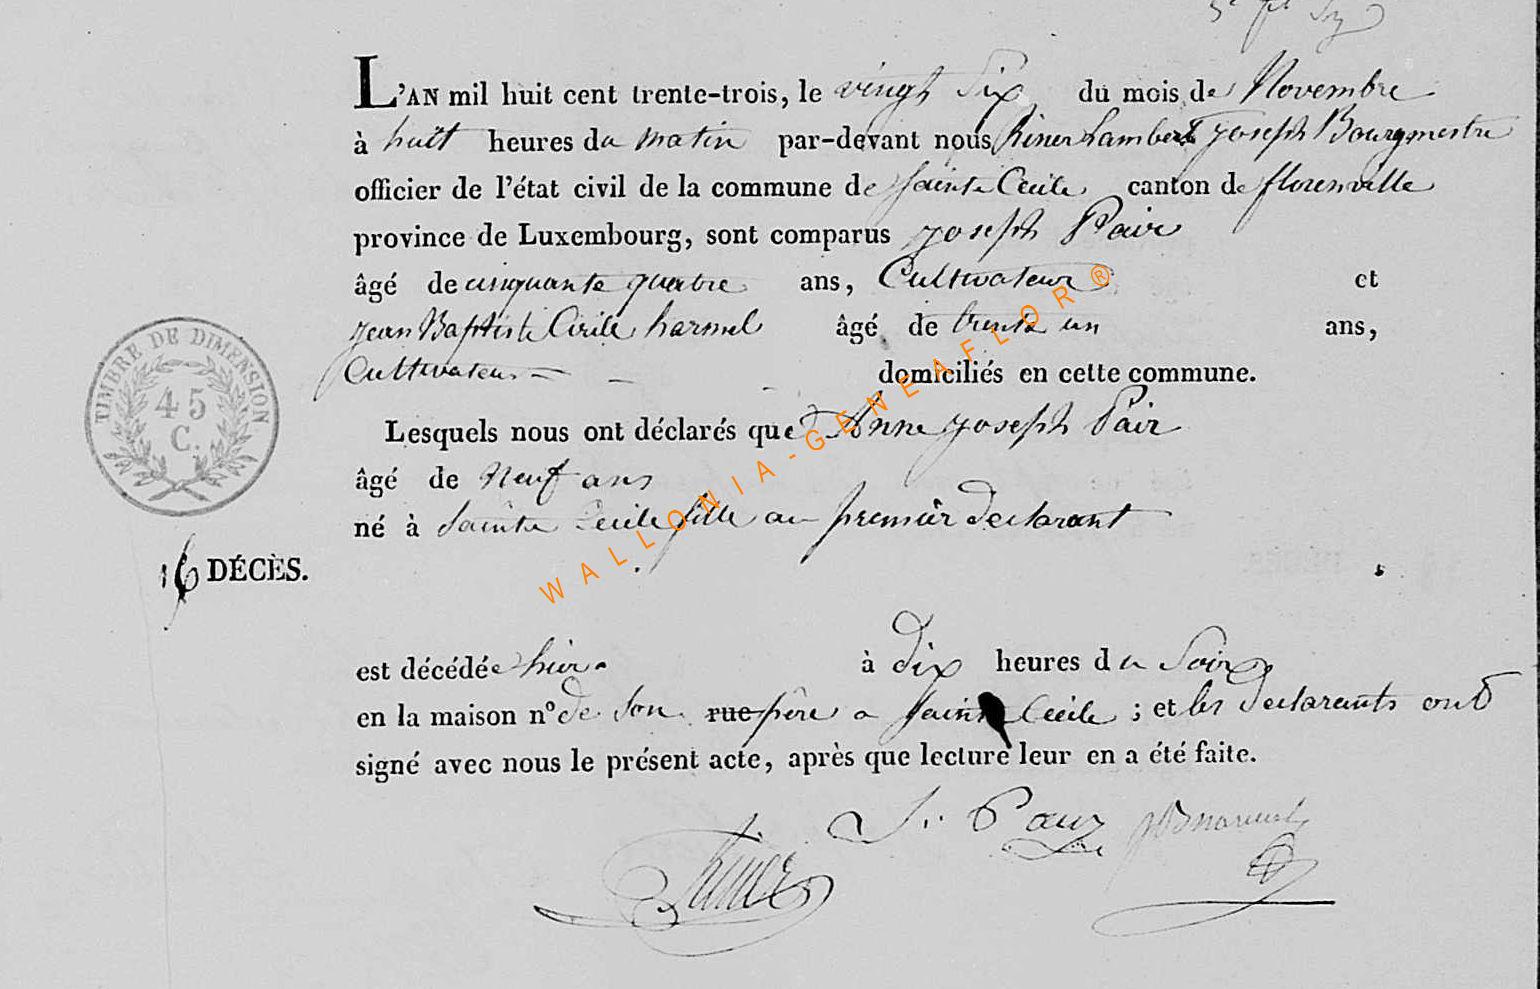 L'AN mil huit cent trente-trois, le vingt Six du mois de Novembre
à huit heures du matin par-devant nous Lambert joseph Bourgmestre
officier de l'état civil de la commune de sainte Cecile canton de florenville
province de Luxembourg, sont comparus joseph Pair
âgé de cinquante quatre ans, Cultivateur et
jean Baptiste Cirile harmel âgé de trente un ans,
Cultivateur domiciliés en cette commune.
Lesquels nous ont déclarés que Anne joseph Pair
âgé de Neuf ans
né à Sainte Cecile fille au premier declarant
16 DÉCÈS.
est décédée hier à dix heures du Soir
en la maison n° de son rue père a sainte Cecile ; et les declarants ont
signé avec nous le présent acte, après que lecture leur en a été faite.
TIMBRE DE DIMENSION
45
C.
WALLONIA-GENEAFLOR®